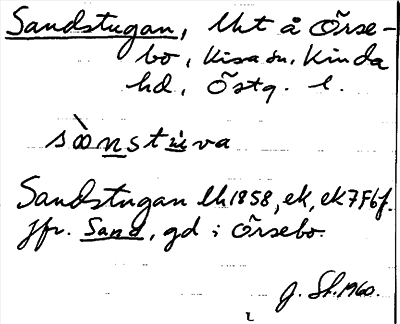 Sandstugan, lht å Örse-
bo, Kisa sn, Kinda
hd, Östg. l.
sànstùva
Sandstugan lh 1858, ek, ek 7F6f.
jfr. Sand, gd i Örsebo.
G. St. 1960.